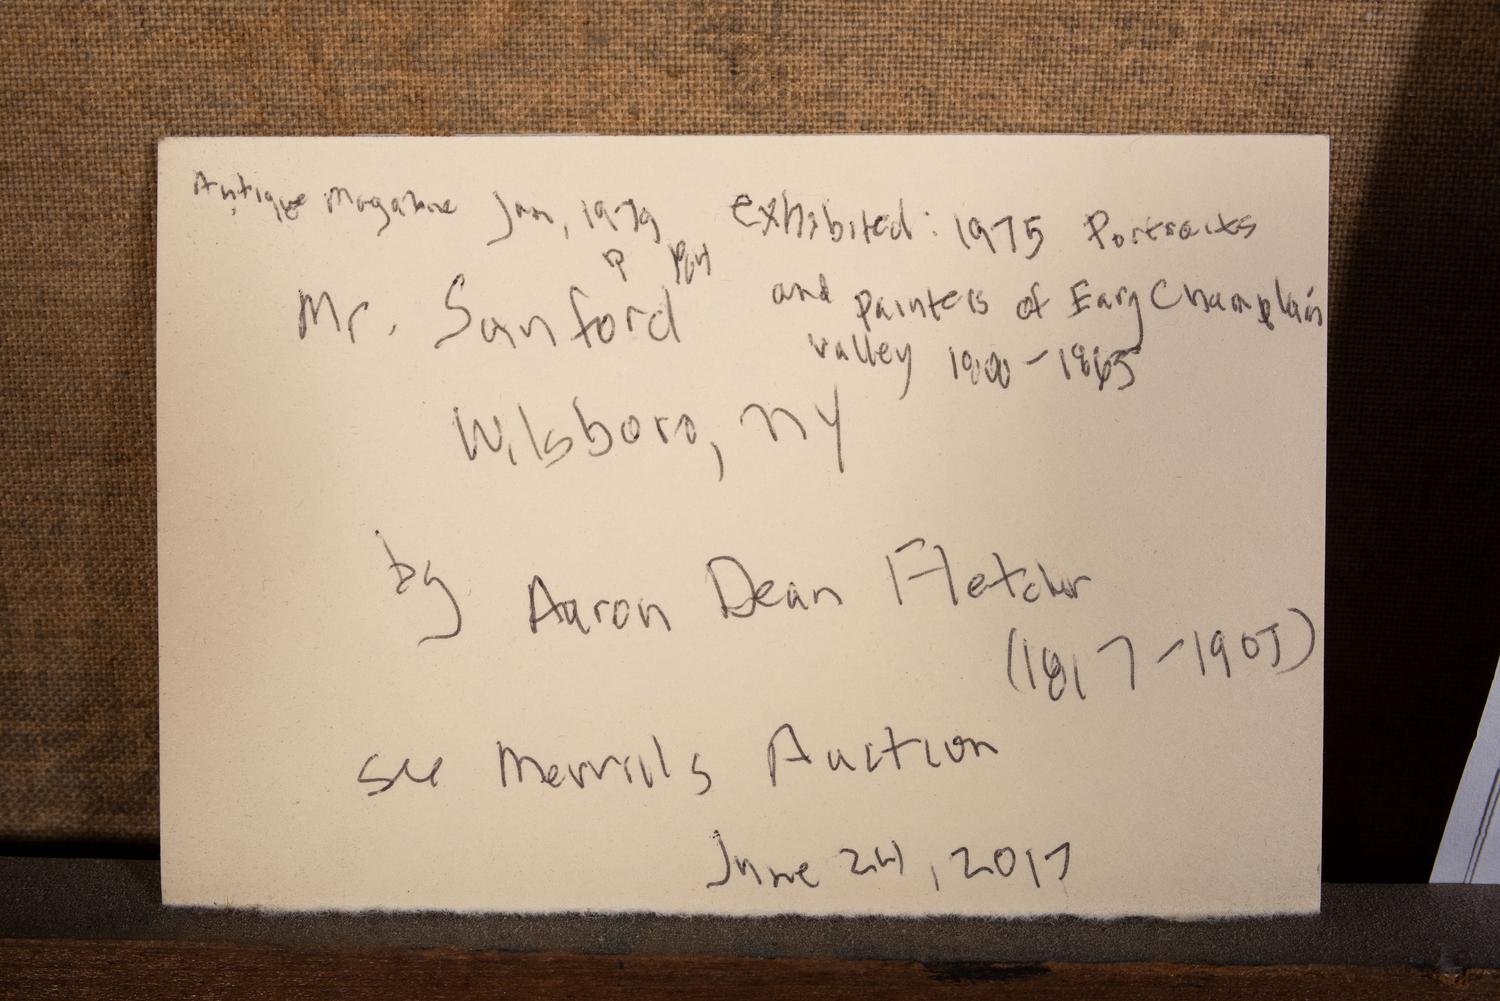 Antique Magazine Jan, 1979
p 184
exhibited: 1975 Portraits
and painters of Eary Champlain
valley 1800-1865
Mr. Sanford
Wilsboro, NY
by Aaron Dean Fletcher
(1817-1905)
see Merrills Auction
June 24, 2017